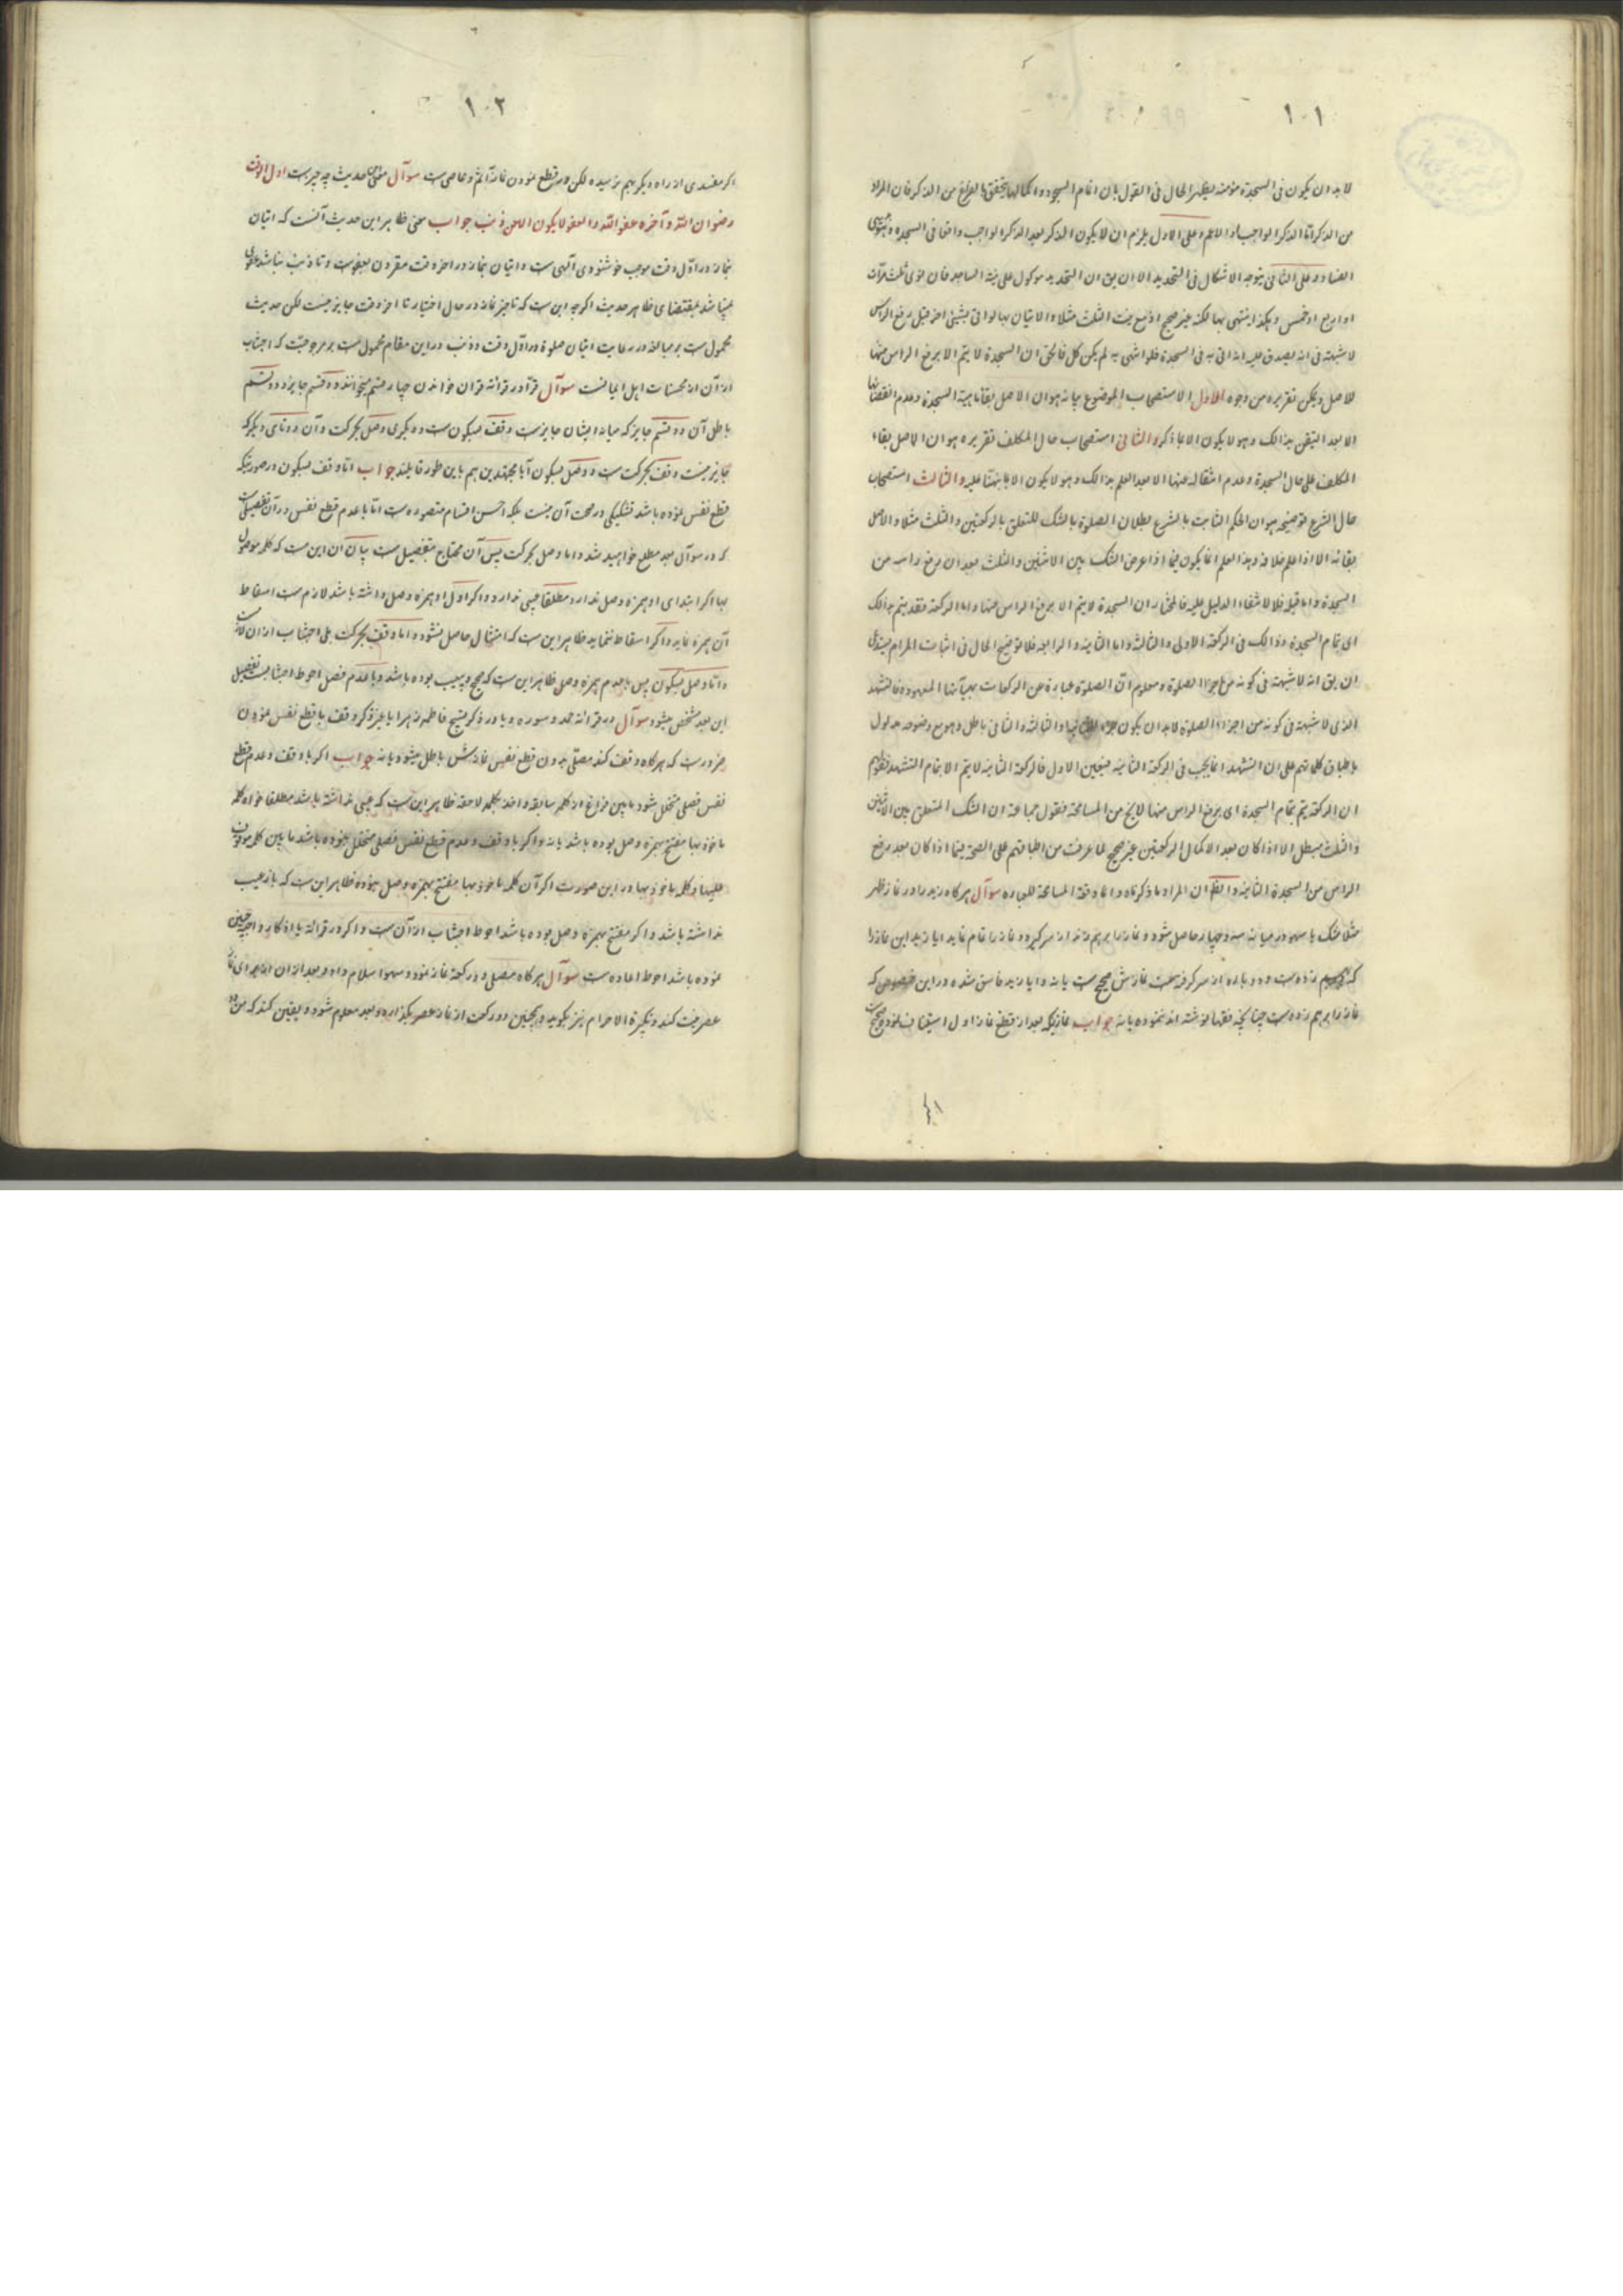 ١٠١
لا بد ان يكون فى السجدة مؤمنه يظهر الحال فى القول بان اتمام السجود و اكمالها يتحقق بالفراغ من الذكر فان المراد
من الذكر اما الذكر الواجب او الاعم و على الاول يلزم ان لا يكون الذكر بعد الذكر الواجب واقعا فى السجدة و هو
الفساد و على الثانى يتوجه الاشكال فى التحديد الا ان يق ان التحديد موكول على نية الساجد فان نوى ثلث مرات
او اربع او خمس و هكذا ينتهى بها لكنه غير صحيح اذ مع نية الثلث مثلا و الاتيان بها لو اتى بشيئ اخر قبل رفع الراس
لا شبهة فى انه يصدق عليه انه اتى به فى السجدة فلو انتهى به لم يكن كل فالحق ان السجدة لا يتم الا برفع الراس منها
للاصل و يمكن تقريره من وجوه الاول الاستصحاب الموضوع بيانه هو ان الاصل بقاء ماهية السجدة و عدم انقضائها
الا بعد التيقن بذالك و هو لا يكون الا بما ذكر و الثانى استصحاب حال المكلف تقريره هو ان الاصل بقاء
المكلف على حال السجدة و عدم انتقاله عنها الا بعد العلم بذالك و هو لا يكون الا بما نبهنا عليه و الثالث استصحاب
حال الشرع توضيحه هو ان الحكم الثابت بالشرع بطلان الصلوة بالشك المتعلق بالركعتين و الثلث مثلا و الاصل
بقائه الا اذا علم خلافه و هذا العلم انما يكون فيما اذا عرض الشك بين الاثنين و الثلث بعد ان رفع راسه من
السجدة و اما قبله فلا لانتفاء الدليل عليه فالمختار ان السجدة لا يتم الا برفع الراس عنها و اما الركعة فقد يتم بذالك
اى بتمام السجدة و ذالك فى الركعة الاولى و الثالثة و اما الثانية و الرابعة فلا توضيح الحال فى اثبات المرام يستدعى
ان يق انه لا شبهة فى كونه من اجزاء الصلوة و معلوم ان الصلوة عبارة عن الركعات بهيآتها المعهودة فالتشهد
الذى لا شبهة فى كونه من اجزاء الصلوة لا بد ان يكون جزء و الثالثة و الثانى باطل و هو مع وضوحه مدلول
باطباق كلماتهم على ان التشهد انما يجب فى الركعة الثانية فتعين الاول فالركعة الثانية لا يتم الا بتمام التشهد فقولهم
ان الركعة يتم بتمام السجدة اى برفع الراس منها لا يخ من المسامحة فقول جماعة ان الشك المتعلق بين الاثنين
و الثلث مبطل الا اذا كان بعد الاكمال الركعتين غير صحيح لما عرفت من اطباقهم على الصحة فيما اذا كان بعد رفع
الراس من السجدة الثانية و الظ ان المراد ما ذكرناه و انما وقعة المسامحة للعباره سوآل هر كاه زيد را در نماز ظهر
مثلا شك يا سهو در ميانه سه و چهار حاصل شود و نماز را برهم زند از سر كيرد و نماز را تمام نمايد ايا زيد اين نماز را
كه زده ست و دوباره از سر كرفته ست نمازش صحيح ست يا نه و ايا زيد فاسق شده در اين خصوص كه
نماز را برهم زده ست چنانچه فقها نوشته اند نموده يا نه جواب نمازيكه بعد از قطع نماز اول استيناف نموده صحيح ست
١٠٢
اكر مفسدى از راه ديكر بهم نرسيده لكن در قطع نمودن نماز آثم و عاصى ست سوآل معنى اين حديث چه چيز ست اول الوقت
رضوان الله و آخره عفو الله و العفو لا يكون الا من ذنب جواب معنى ظاهر اين حديث آنست كه اتيان
بنماز در اول وقت موجب خوشنودى آلهى ست و اتيان بنماز در اخر وقت مقرون بعفو ست و تا ذنب نباشد عفو
نميباشد بمقتضاى ظاهر حديث اكرچه اين ست كه تاخير نماز در حال اختيار تا اخر وقت جايز نيست لكن حديث
محمول ست بر مبالغه در رعايت اتيان صلوة در اول وقت و ذنب در اين مقام محمول ست بر مرجوحيت كه اجتناب
از آن از محسنات اهل ايمانست سوآل قرآ در قرائة قران خواندن چهار قسم ميخوانند دو قسم جايز و دو قسم
باطل آن دو قسم جايز كه ميانه ايشان جايز ست وقف بسكون ست و ديكرى وصل بحركت و آن دوتاى ديكر كه
جايز نيست وقف بحركت ست و وصل بسكون آيا مجتهدين هم باين طور قايلند جواب اما وقف بسكون در صورتيكه
قطع نفس نموده باشد تشكيكى در صحت آن نيست بلكه احسن اقسام متصوره ست اما با عدم قطع نفس در آن تفصيلى ست
كه در سوآل بعد مطلع خواهيد شد و اما وصل بحركت پس آن محتاج بتفصيل ست بيان آن اين ست كه كلمه موصول
بها اكر ابتداى او همزه وصل ندارد مطلقا عيبى ندارد و اكر اول او همزه وصل داشته باشد لازم ست اسقاط
آن همزه نمايد و اكر اسقاط ننمايد ظاهر اين ست كه امتثال حاصل نشود و اما وقف بحركت بلى اجتناب از ان
و اما وصل بسكون پس با عدم همزه وصل ظاهر اين ست كه صحيح و بيعيب بوده باشد و با عدم فصل احوط اجتناب ست تفصيل
اين بعد مشخص ميشود سوآل در قرائة حمد و سوره و يا در ذكر تسبيح فاطمه زهرا يا غير ذكر وقف با قطع نفس نمودن
ضرور ست كه هر كاه وقف كند مصلى بدون قطع نفس نمازش باطل ميشود يا نه جواب اكر با وقف و عدم قطع
نفس فصلى متخلل شود مابين فراغ از كلمه سابقه و اخذ بكلمه لاحقه ظاهر اين ست كه عيبى نداشته باشد مطلقا خواه كلمه
ماخوذ بها مفتتح بهمزه وصل بوده باشد يا نه و اكر با وقف و عدم قطع نفس فصلى متخلل نبوده باشد مابين كلمه موقوف
عليها و كلمه ماخوذ بها در اين صورت اكر آن كلمه ماخوذ بها مفتتح بهمزه وصل نبوده ظاهر اين ست كه باز عيب
نداشته باشد و اكر مفتتح بهمزه وصل بوده باشد احوط اجتناب از آن ست و اكر در قرائة يا اذكار واجبه چنين
نموده باشد احوط اعاده ست سوآل هر كاه مصلى دو ركعة نماز نمود و سهوا سلام داد و بعد از ان از براى نماز
عصر نيت كند و تكبيرة الاحرام نيز بكويد و همچنين دو ركعت از نماز عصر بكذارد و بعد معلوم شود و يقين كند كه